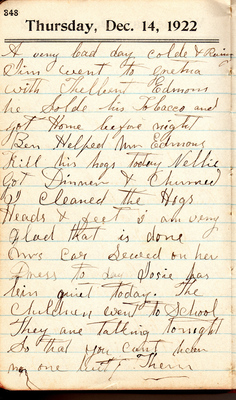 348
Thursday, Dec. 14, 1922
A very bad day colde & Raining
Jim went to
with Thelbert Edmons
he Solde his Tobacco and
got Home before night
Ben Helped Mr Edmons
Kill his hogs today Nellie
Got Dinner & Churned
I Cleaned the Hogs
Heads & feet & am very
glad that is done
Mrs Car Sewed on her
Dress to day Josie has
bin quiet today. The
Children went to School
They are talking tonight
So that you cant hear
no one but Them